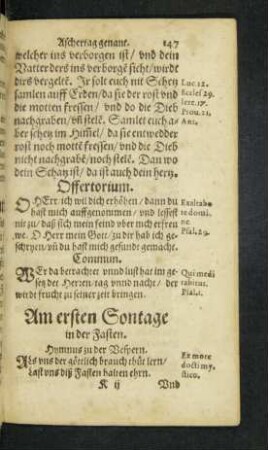 Aschertag genant. 147
welcher ins verborgen ist / vnd dein
Vatter ders ins verborgē sicht / wirdt
dirs vergeltē. Ir solt euch nit Schetz
samlen auff Erden / da sie der rost vnd
die motten fressen / vnd do die Dieb
nachgraben / vñ stelē. Samlet euch a-
ber schetz im Him̃el / da sie entwedder
rost noch mottē fressen / vnd die Dieb
nicht nachgrabē / noch stelē. Dan wo
dein Schatz ist / da ist auch dein hertz.
Luc. 12.
Ecclesi 29.
Iere. 17.
Prou. 11.
Ant.
Offertorium.
OHErr ich wil dich erhöhen / dann du
hast mich auffgenommen / vnd lessest
nit zu / daß sich mein feind vber mich erfreu
we. O Herr mein Gott / zu dir hab ich ge-
schryen / vñ du hast mich gesundt gemacht.
Exaltabo
te domi-
ne.
Psal. 29.
Commun.
WEr da betrachtet vnnd lust hat im ge-
setz des Herren / tag vnnd nacht / der
wirdt frucht zu seiner zeit bringen.
Qui medi
tabitur.
Psal. 1.
Am ersten Sontage
in der Fasten.
Hymnus zu der Vespern.
ALs vns der göttlich brauch thůt lern /
Last vns diß Fasten halten ehrn.
Ex more
docti my-
stico.
K ij Vnd